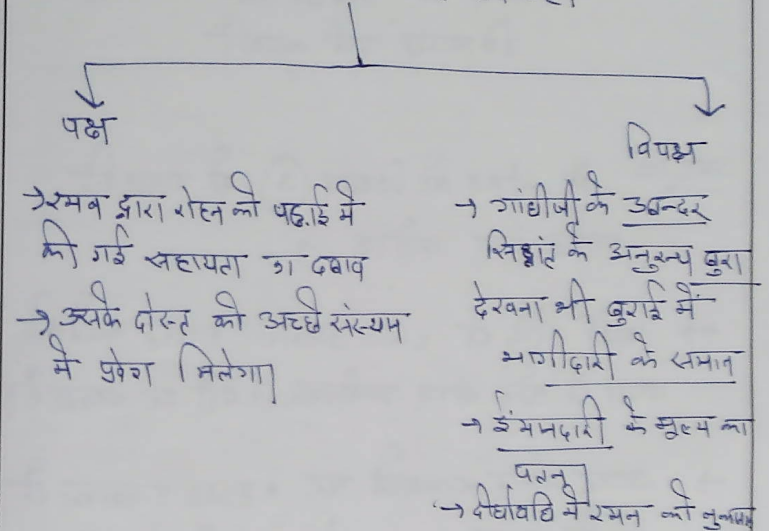 पक्ष
विपक्ष
→ रमन द्वारा रोहन को पढ़ाई में
की गई सहायता का दबाव
→ उसके दोस्त को अच्छे संस्थान
में प्रवेश मिलेगा।
→ गांधीजी के 3 बन्दर
सिद्धांत के अनुरूप बुरा
देखना भी बुराई में
भागीदारी के समान
→ ईमानदारी के मूल्य का
पतन
→ दीर्घावधि में रमन को नुकसान